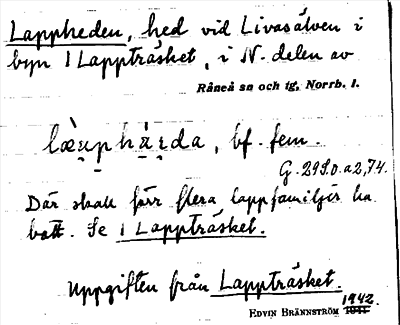 Lappheden, hed vid Livasälven i
byn 1 Lappträsket, i N. delen av
Råneå sn och tg, Norrb. l.
læ̀u̯p̣hà̱ṛda, bf. fem.
G. 29 S. o. a 2, 74.
Där skall förr flera lappfamiljer ha
bott. Se 1 Lappträsket.
Uppgiften från Lappträsket.
1942.
EDVIN BRÄNNSTRÖM 1941